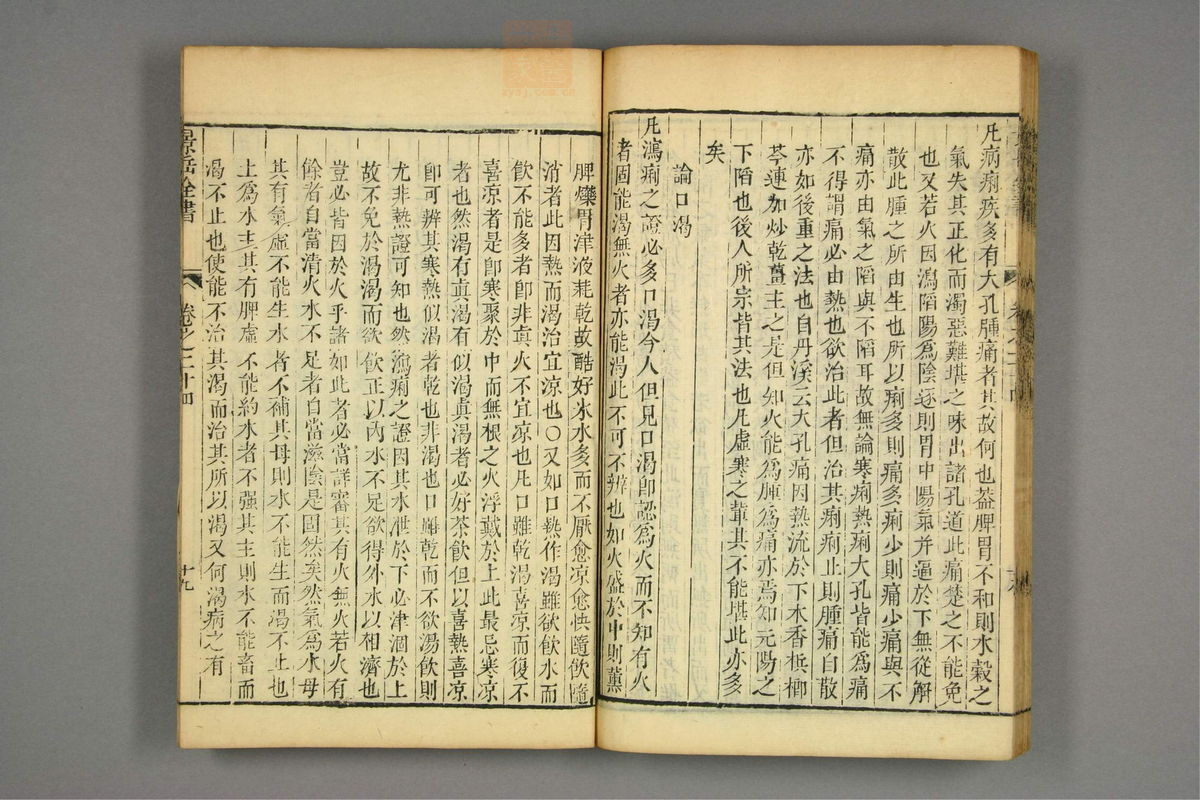 凡病痢疾多有大孔腫痛者其故何也葢脾胃不和則水穀之
氣失其正化而濁惡難堪之味出諸孔道此痛楚之不能免
也又若火因瀉陷陽爲陰逐則胃中陽氣并逼於下無從解
散此腫之所由生也所以痢多則痛多痢少則痛少痛與不
痛亦由氣之陷與不陷耳故無論寒痢熱痢大孔皆能爲痛
不得謂痛必由熱也欲治此者但治其痢痢止則腫痛自散
亦如後重之法也自丹溪云大孔痛因熱流於下木香梹榔
芩連加炒乾薑主之是但知火能爲腫爲痛亦焉知元陽之
下陷也後人所宗皆其法也凡虛寒之軰其不能堪此亦多
矣
論口渴
凡瀉痢之證必多口渴今人但見口渴卽認爲火而不知有火
者固能渴無火者亦能渴此不可不辨也如火盛於中則薰
脾爍胃津液耗乾故酷好氷水多而不厭愈凉愈快隨飲隨
消者此因熱而渴治宜凉也〇又如口熱作渴雖欲飲水而
飲不能多者卽非眞火不宜凉也凡口雖乾渴喜凉而復不
喜凉者是卽寒聚於中而無根之火浮戴於上此最忌寒凉
者也然渴有眞渴有似渴眞渴者必好茶飲但以喜熱喜凉
卽可辨其寒熱似渴者乾也非渴也口雖乾而不欲湯飲則
尤非熱證可知也然瀉痢之證因其水泄於下必津涸於上
故不免於渴渴而欲飲正以內水不足欲得外水以相濟也
豈必皆因於火乎諸如此者必當詳審其有火無火若火有
餘者自當清火水不足者自當滋陰是固然矣然氣爲水母
其有氣虛不能生水者不補其母則水不能生而渴不止也
土爲水主其有脾虛不能約水者不强其主則水不能畜而
渴不止也使能不治其渴而治其所以渴又何渴病之有
景岳全書
卷之二十四
十九